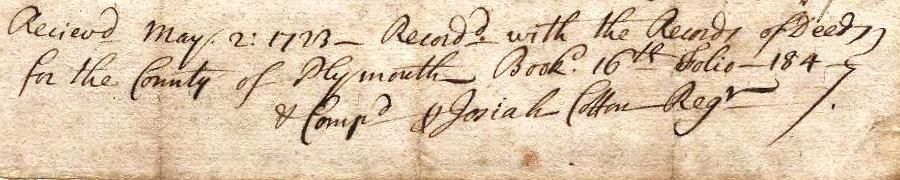 Recievd May. 2: 1723 — Recordd. with the Records of Deeds
for the County of Plymouth — Book. 16th Folio — 184 —
& Compd ⅌ Josiah Cotton Regr